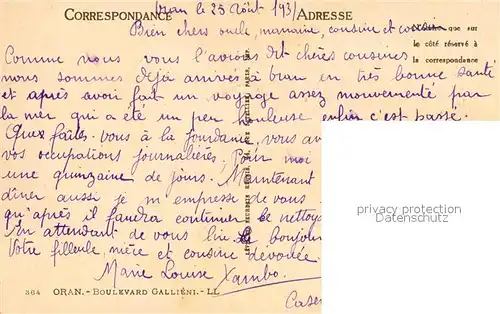 CORRESPONDANCE
ADRESSE
Oran le 25 Août 193
Bien chers oncle, marraine, cousine et cousin
que sur
le côté réservé à
la correspondance
Comme nous vous l'avions dit chères cousines
nous sommes déjà arrivés à Oran en très bonne santé
et après avoir fait un voyage assez mouvementé par
la mer qui a été un peu houleuse enfin c'est passé.
Que faites-vous à la Jourdanie, vous av
vos occupations journalières. Pour moi
une quinzaine de jours. Maintenant
dîner aussi je m'empresse de vous
qu'après il faudra continuer le nettoy
En attendant de vous lire bonjour
Votre filleule, nièce et cousine dévouée.
Marie Louise Xambo.
privacy protection
Datenschutz
364 ORAN. - BOULEVARD GALLIÉNI. - LL